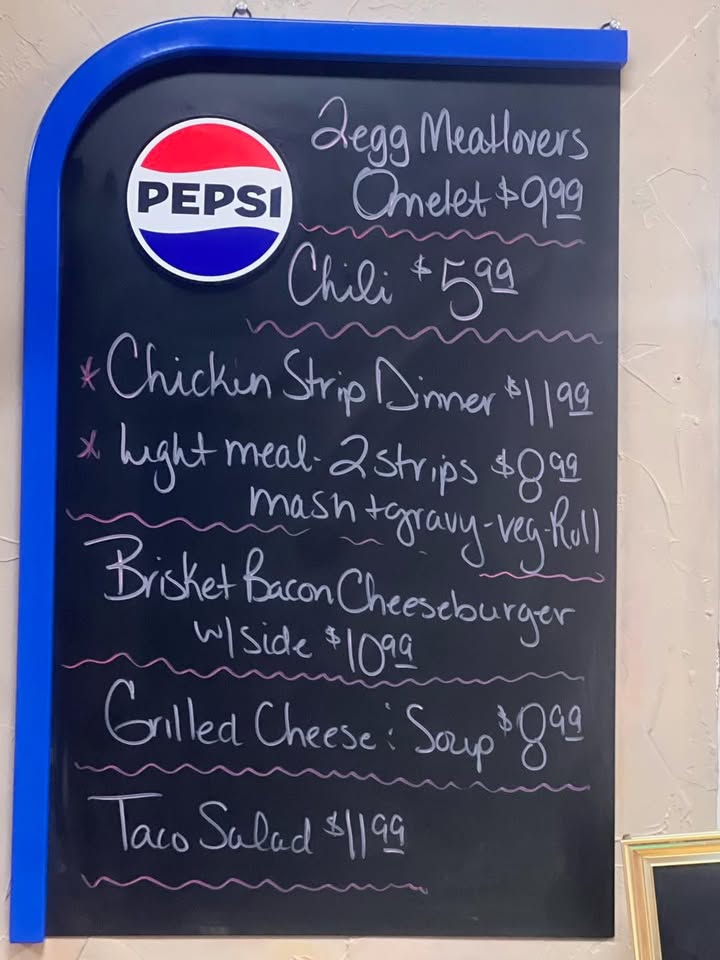 PEPSI
2egg Meatlovers
Omelet $9.99
Chili $5.99
* Chicken Strip Dinner $11.99
* Light meal - 2 strips $8.99
mash + gravy - veg - Roll
Brisket Bacon Cheeseburger
w/ side $10.99
Grilled Cheese : Soup $8.99
Taco Salad $11.99